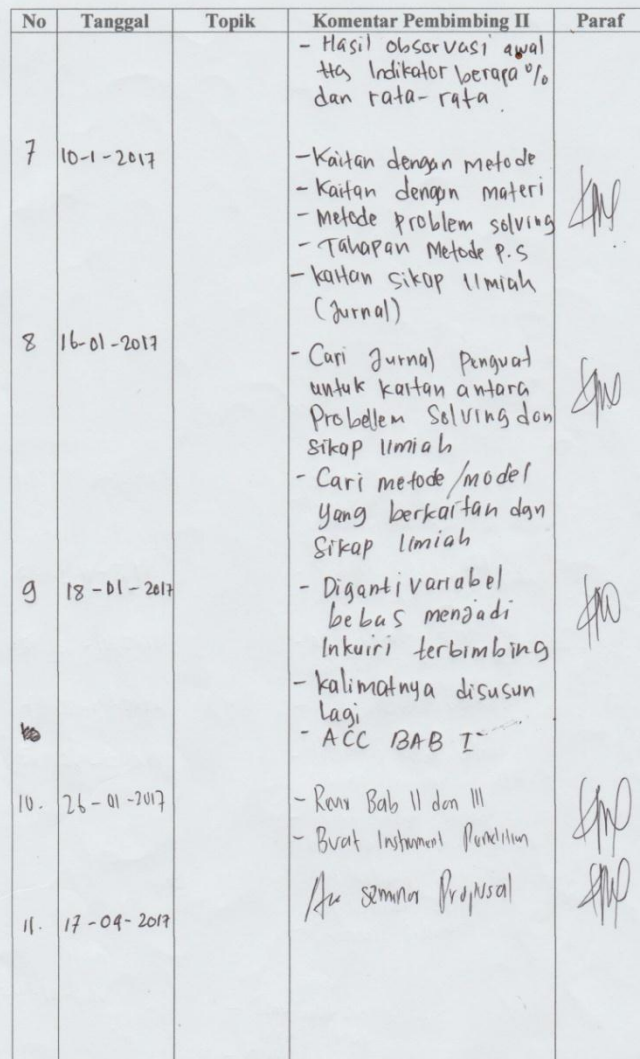 No Tanggal Topik Komentar Pembimbing II Paraf
- Hasil observasi awal
ttg Indikator berapa %
dan rata-rata
7 10-1-2017 - Kaitan dengan metode
- Kaitan dengan materi
- Metode Problem solving
- Tahapan Metode P.S
- Kaitan Sikap Ilmiah
(Jurnal)
8 16-01-2017
- Cari Jurnal Penguat
untuk kaitan antara
Probellem Solving dan
Sikap Ilmiah
- Cari metode/model
yang berkaitan dgn
Sikap Ilmiah
9 18-01-2017 - Diganti variabel
bebas menjadi
Inkuiri terbimbing
- Kalimatnya disusun
lagi
- ACC BAB I
10. 26-01-2017 - Revisi Bab II dan III
- Buat Instrument Penelitian
Acc Seminar Proposal
11. 17-04-2017